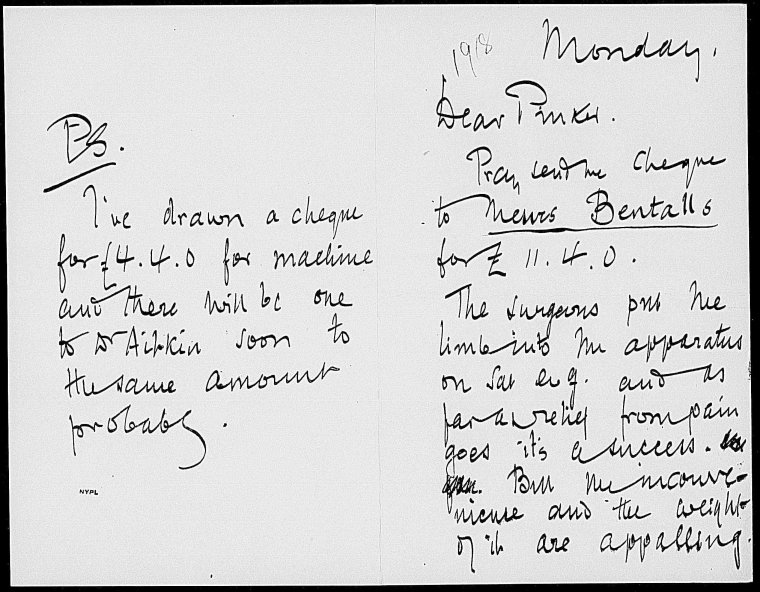 1918
Monday.
Dear Pinker.
Pray send the cheque
to Mewrs Bentalls
for £ 11.4.0.
The surgeons put the
limb into the apparatus
on Sat evg. and as
far as relief from pain
goes it's a success.
But the inconve-
nience and the weight
of it are appalling.
PS.
I've drawn a cheque
for £4.4.0 for machine
and there will be one
to Dr Aitkin soon to
the same amount
probably.
NYPL